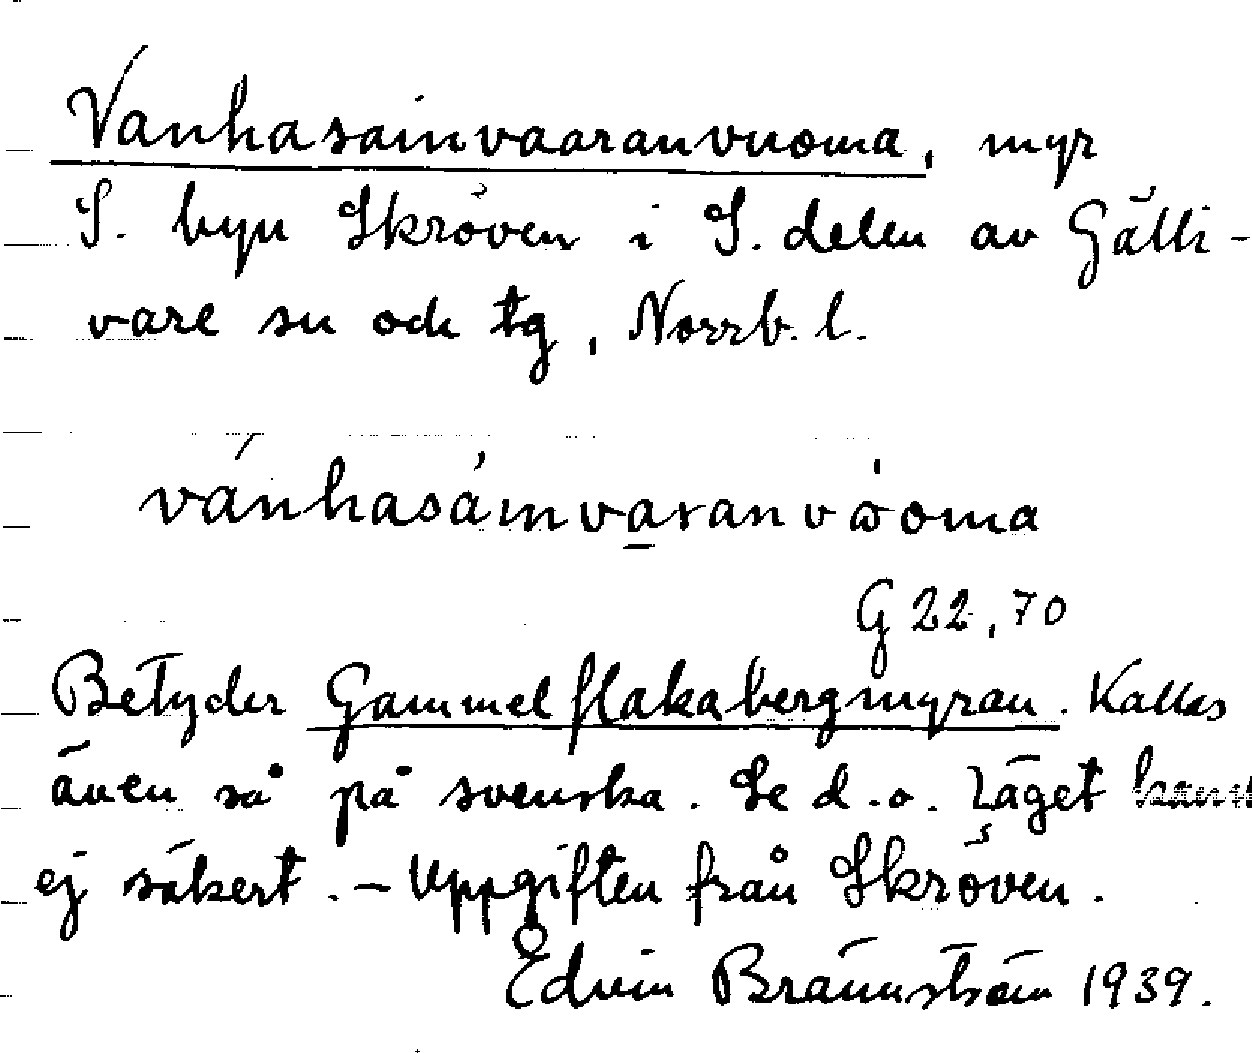 Vanhasainvaaranvuoma, myr
S. byn Skröven i S. delen av Gälli-
vare sn och tg, Norrb. l.
vánhasáinvaranvòoma
G 22,70
Betyder Gammelflakabergmyran. Kallas
även så på svenska. Se d.o. Läget
ej säkert. – Uppgiften från Skröven.
Edvin Brännström 1939.